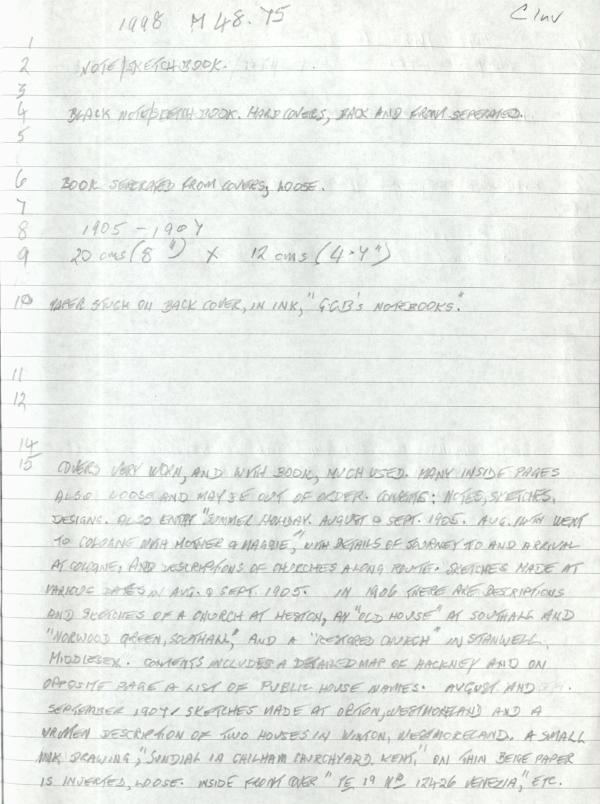 1998 M 48.75 C Inv
1
2 NOTE/SKETCH BOOK.
3
4 BLACK NOTE/SKETCH BOOK. HARD COVERS, BACK AND FRONT SEPERATED.
5
6 BOOK SEPERATED FROM COVERS, LOOSE.
7
8 1905 - 1907
9 20 cms (8") X 12 cms (4.7")
10 PAPER STUCK ON BACK COVER, IN INK, "GGB's NOTEBOOKS."
11
12
14
15 COVERS VERY WORN, AND WITH BOOK, MUCH USED. MANY INSIDE PAGES
ALSO LOOSE AND MAY BE OUT OF ORDER. CONTENTS: NOTES, SKETCHES,
DESIGNS. ALSO ENTRY "SUMMER HOLIDAY. AUGUST & SEPT. 1905. AUG. WENT
TO COLOGNE WITH MOTHER & MAGGIE", WITH DETAILS OF JOURNEY TO AND ARRIVAL
AT COLOGNE, AND DESCRIPTIONS OF CHURCHES ALONG ROUTE. SKETCHES MADE AT
VARIOUS DATES IN AUG. & SEPT. 1905. IN 1906 THERE ARE DESCRIPTIONS
AND SKETCHES OF A CHURCH AT HESTON, AN "OLD HOUSE" AT SOUTHALL AND
"NORWOOD GREEN, SOUTHALL", AND A "RESTORED CHURCH" IN STANWELL,
MIDDLESEX. CONTENTS INCLUDES A DETAILED MAP OF HACKNEY AND ON
OPPOSITE PAGE A LIST OF PUBLIC HOUSE NAMES. AUGUST AND
SEPTEMBER 1907, SKETCHES MADE AT ORTON, WESTMORELAND AND A
WRITTEN DESCRIPTION OF TWO HOUSES IN WINTON, WESTMORELAND. A SMALL
INK DRAWING, "SUNDIAL IN CHILHAM CHURCHYARD, KENT," ON THIN BEIGE PAPER
IS INVERTED, LOOSE. INSIDE FRONT COVER "TE 19 No 12426 VENEZIA," ETC.